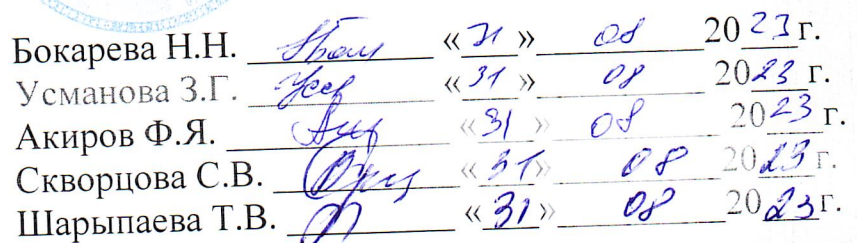 Бокарева Н.Н. «31» 08 2023г.
Усманова З.Г. «31» 08 2023 г.
Акиров Ф.Я. «31» 08 2023 г.
Скворцова С.В. «31» 08 2023 г.
Шарыпаева Т.В. «31» 08 2023 г.